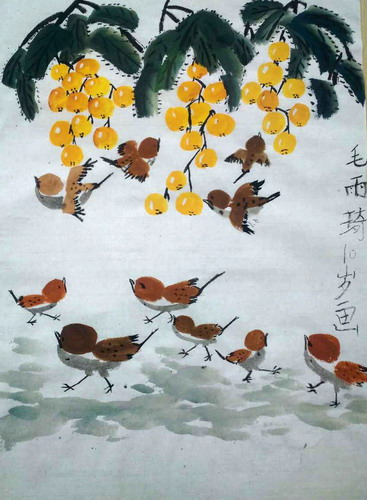 毛雨琦10岁画